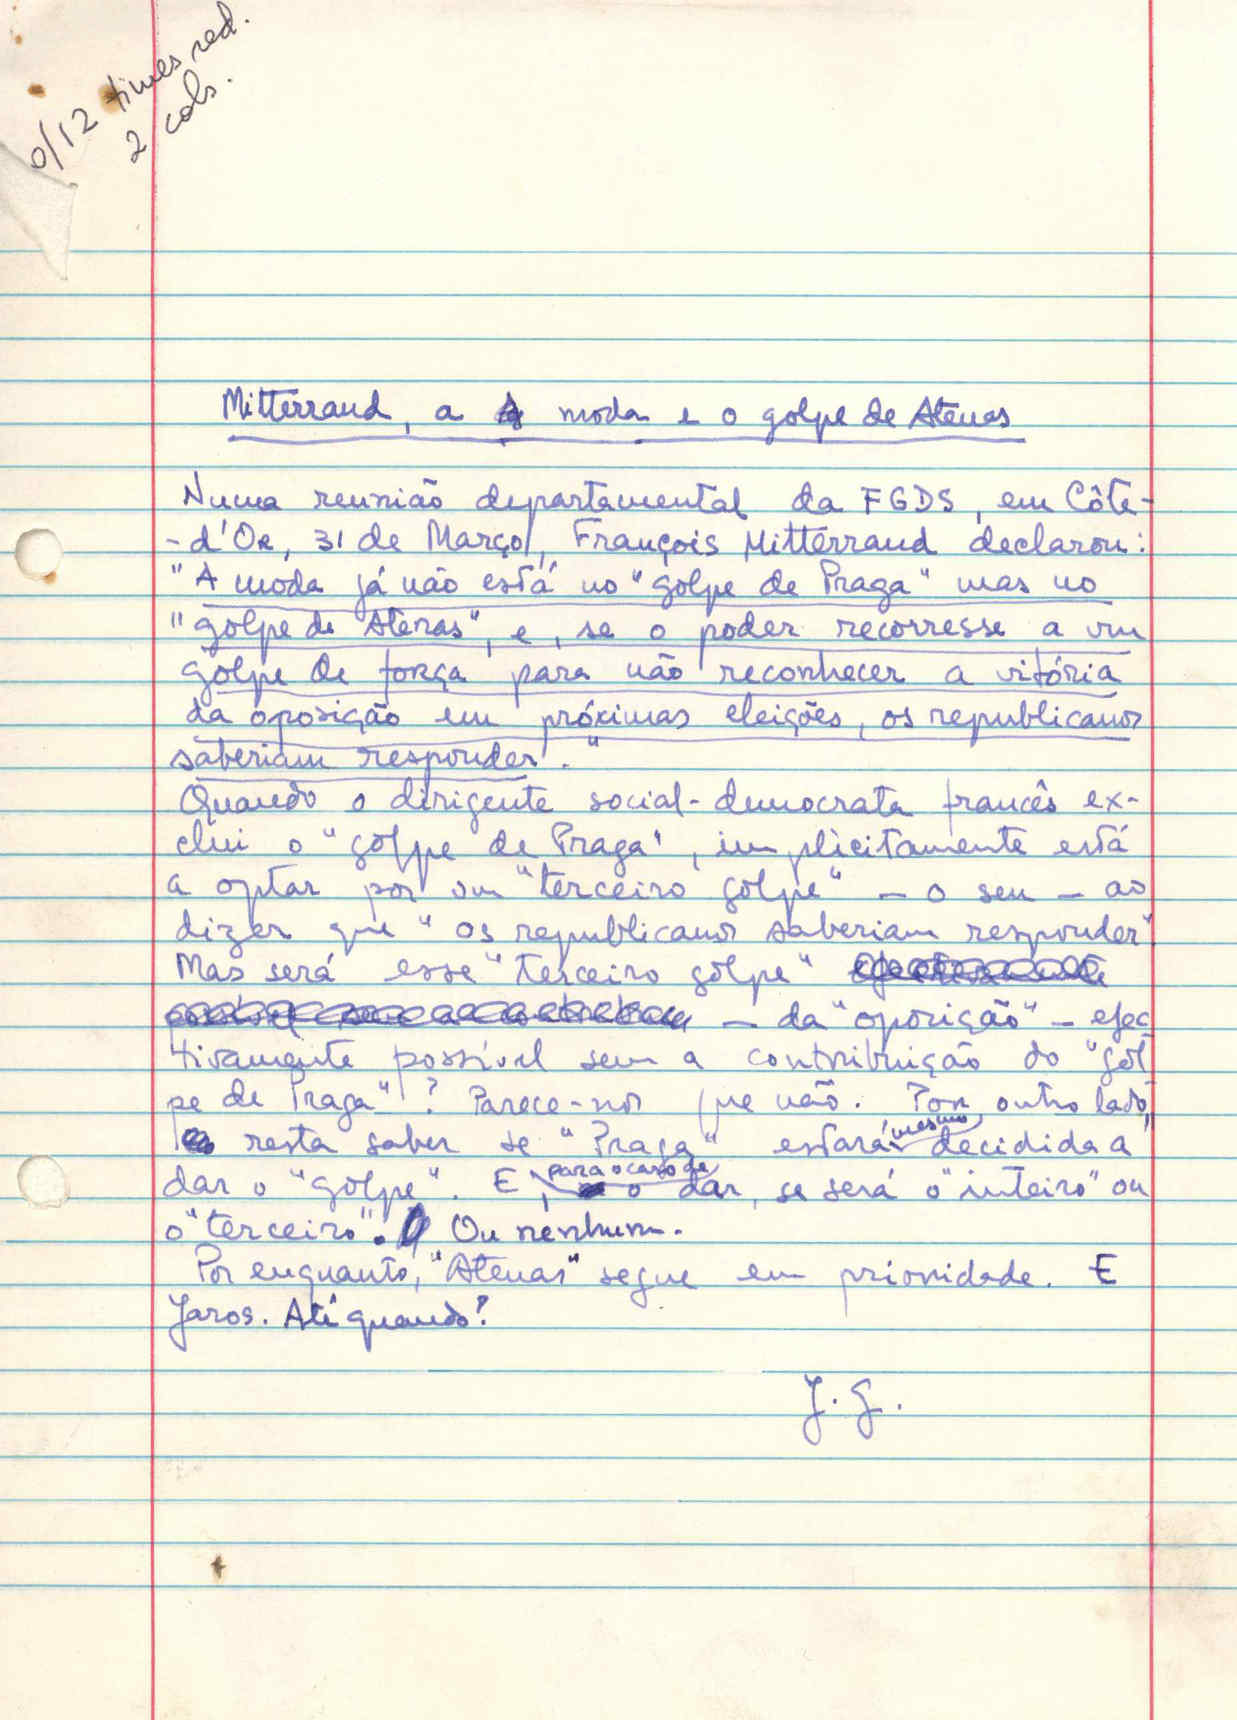 0/12 times red.
2 cols.
Mitterrand, a moda e o golpe de Atenas
Numa reunião departamental da FGDS, em Côte-
-d'Or, 31 de Março, François Mitterrand declarou:
"A moda já não está no "golpe de Praga" mas no
"golpe de Atenas", e, se o poder recorresse a um
golpe de força para não reconhecer a vitória
da oposição em próximas eleições, os republicanos
saberiam responder."
Quando o dirigente social-democrata francês ex-
clui o "golpe de Praga", implicitamente está
a optar por um "terceiro golpe" – o seu – ao
dizer que "os republicanos saberiam responder".
Mas será esse "terceiro golpe"
– da "oposição" – efec
tivamente possível sem a contribuição do "gol
pe de Praga"? Parece-nos que não. Por outro lado,
resta saber se "Praga" estará "mesmo" decidida a
dar o "golpe". E, para o caso de o dar, se será o "inteiro" ou
o "terceiro". Ou nenhum.
Por enquanto, "Atenas" segue em prioridade. E
Jaros. Até quando?
J. G.